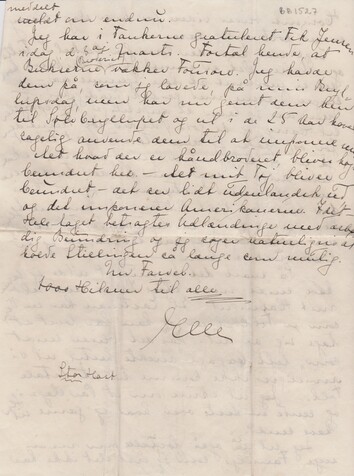 BB1527
meddelt
endnu.
Jeg har i Tankerne gratuleret Frk
idag d. 3 af Marts. Fortæl hende, at
vækker Furore. Jeg havde
dem på, som jeg lovede, på min Bryl-
lupsdag, men har nu gemt dem hen
til Sølvbryllupet og ut i de 25 Aar kun
anvende dem til at imponere med
det hvad der er håndbroderet, bliver
beundret her. – Alt mit Tøj bliver
beundret – det er lidt udenlandsk
og det imponerer Amerikanerne. I det
Hele taget betragtes Udlændinge med
dig Beundring og jeg søger naturligvis at
holde Stillingen så lange som mulig.
Nu Farvel.
1000 Hilsner til alle,
Elle
Stor Hast